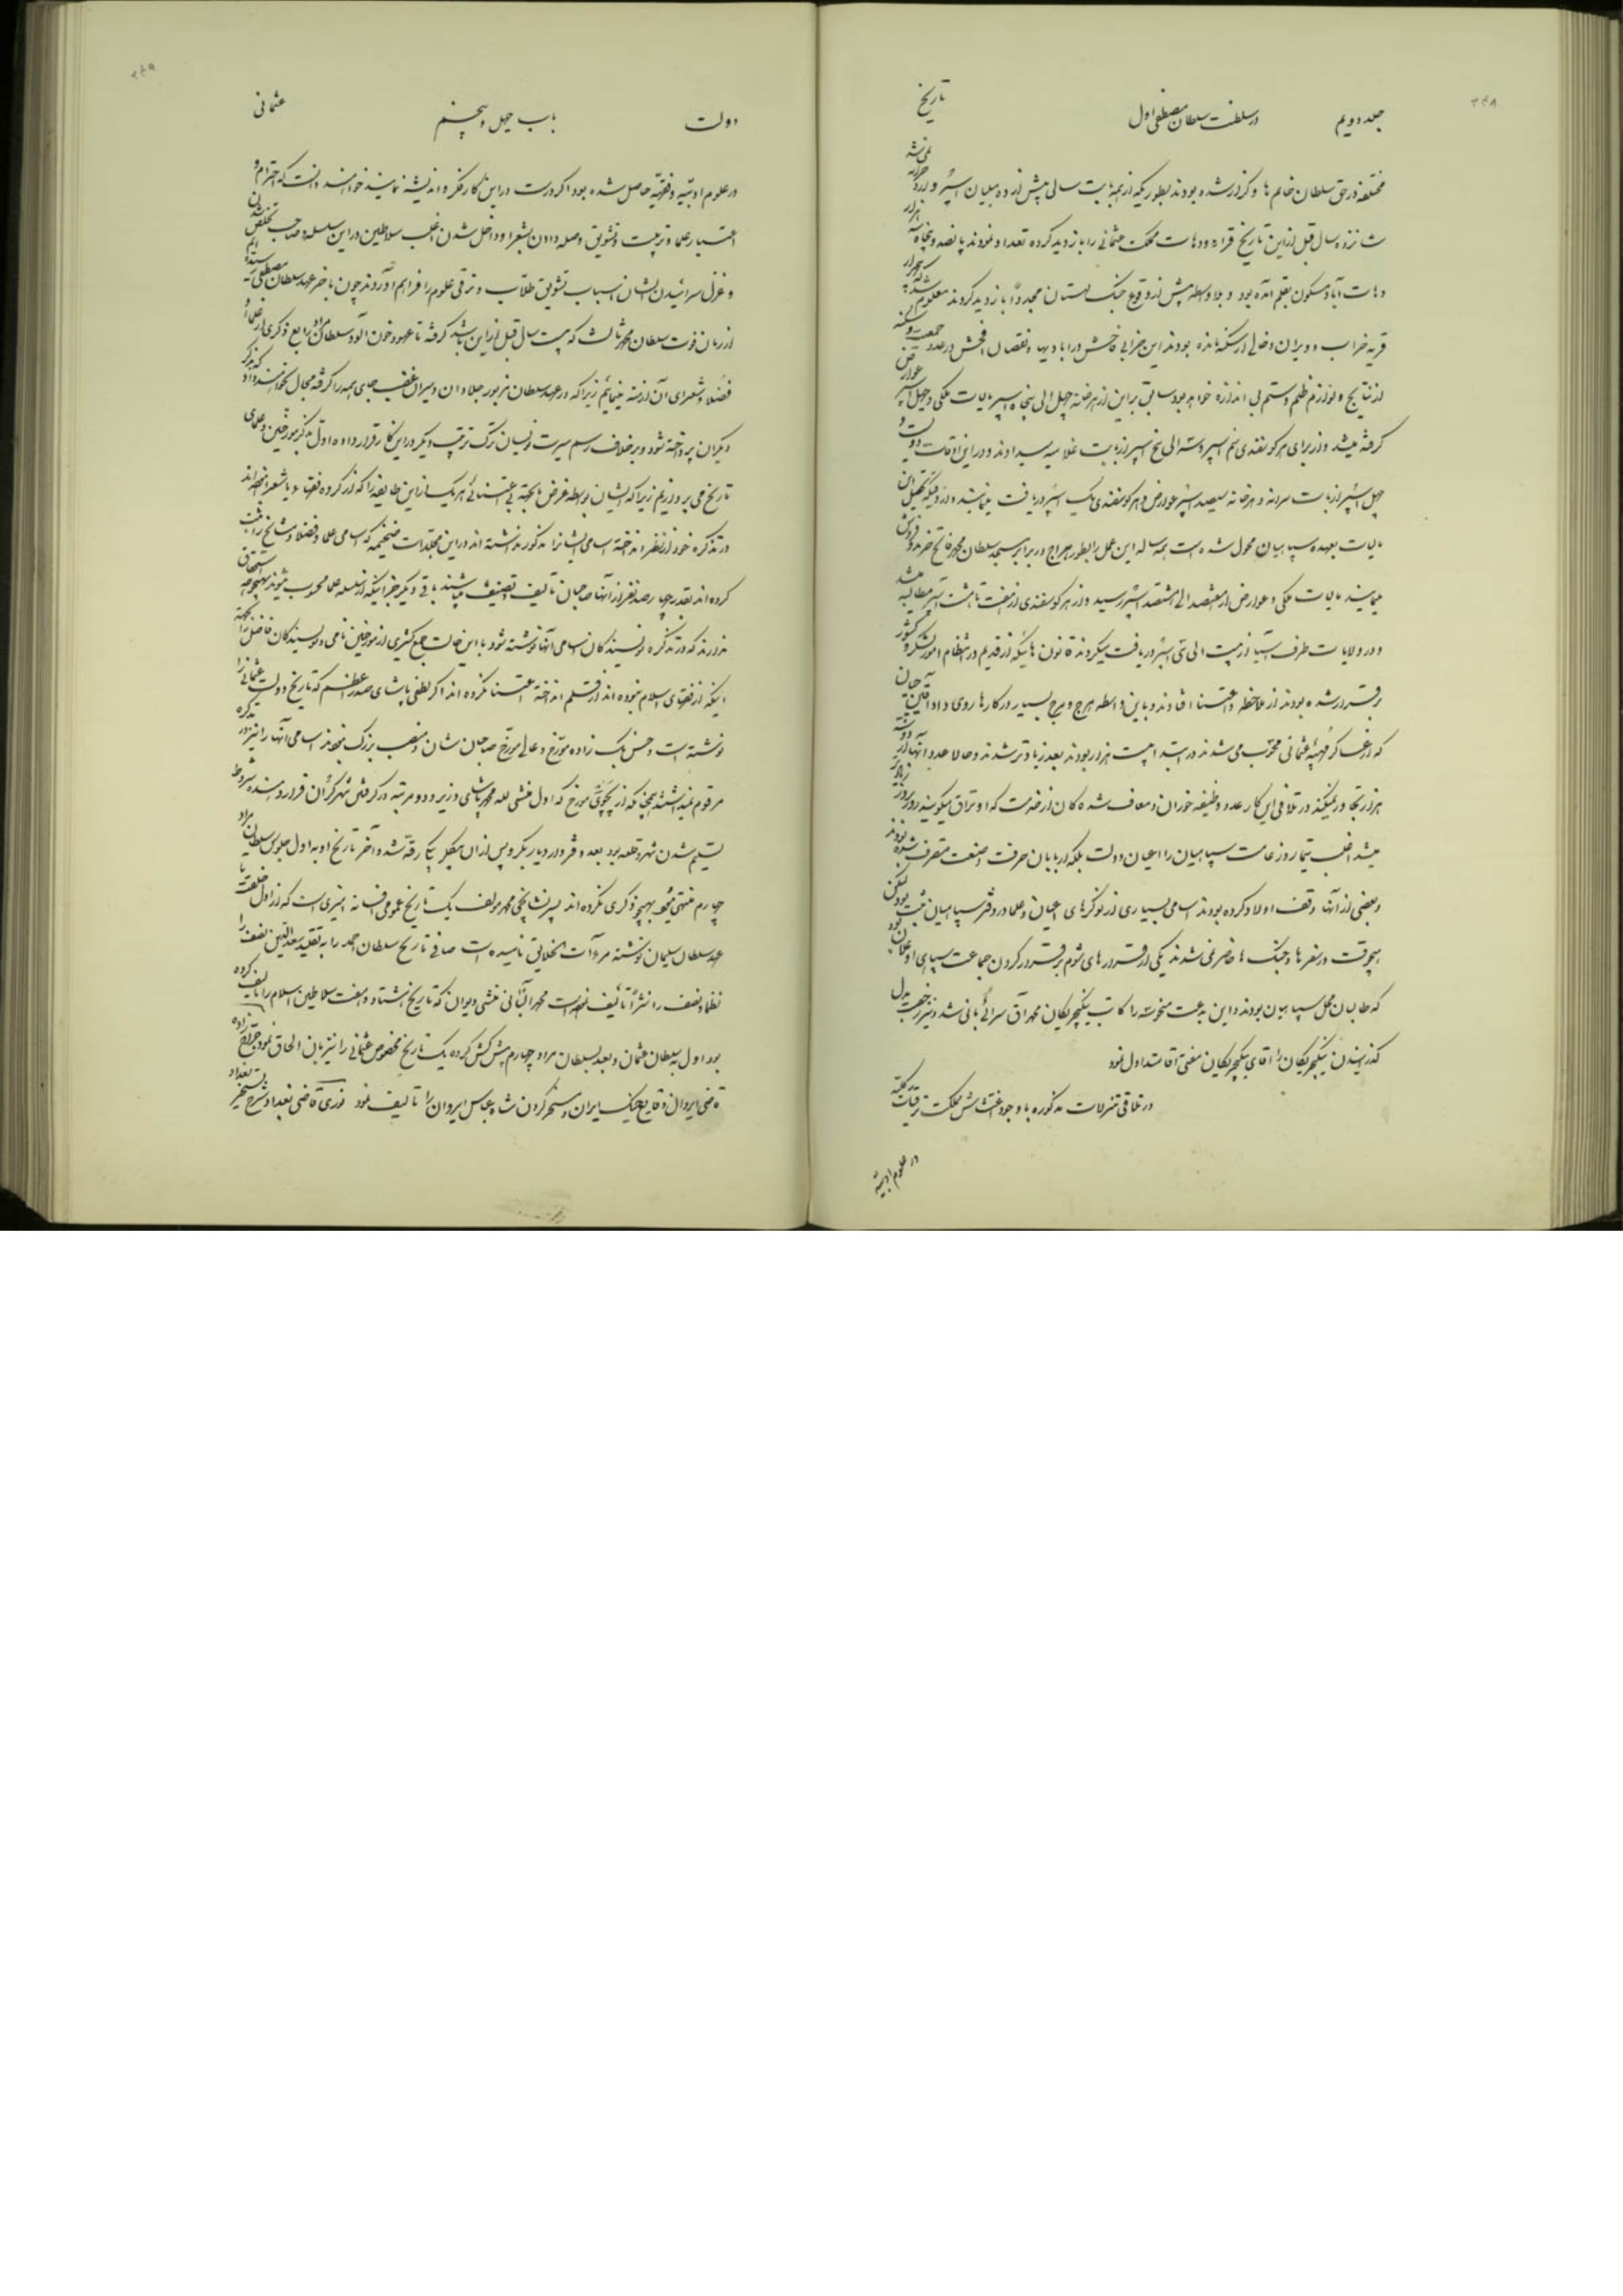 ۳۴۸
جلد دویم در سلطنت سلطان مصطفی اول تاریخ
مختلفه در حق سلطان خانم ها و کزار شده بودند بطوریکه از نهایت سالی پیش از ده میلیان اسپر و زرد خزانه نمی شد
شانزده سال قبل از این تاریخ قراء و دهات مملکت عثمانی را بازدید کرده تعداد نمودند پانصد و پنجاه هزار
دهات آباد و مسکون بقلم آمده بود و بلاواسطه پیش از وقوع جنک لهستان مجدداً بازدید کردند معلوم شد که
قریه خراب و ویران و خالی از سکنه مانده بودند این خرابی فاحش در آبادیها و نقصان افحش در عدد جمعیت و سکنه
از نتایج و لوازم ظلم و ستم بی اندازه خواهد بود سابق بر این از هر خانه چهل الی پنجاه اسپر مالیات ملکی و چهل اسپر عوارض
گرفته میشد و از برای هر کوسفندی نیم اسپر و سه الی پنج اسپر از بابت غلامیه میدادند و در این اوقات دویست و
چهل اسپر از بابت سرانه و هر خانه سیصد اسپر عوارض و هر کوسفندی یک اسپر دریافت مینمایند و از وقتیکه تحصیل این
مالیات بعهده سپاهیان محول شده است همه ساله این عمل را بطور حراج در برابر مسجد سلطان محمد فاتح خرید و فروش
مینمایند مالیات ملکی و عوارض از هفتصد الی هشتصد اسپر رسید و از هر کوسفندی از هفت تا هشت اسپر مطالبه میشد
و در ولایات طرف آسیا از بیست الی سی اسپر دریافت میکردند قانون هائیکه از قدیم در انتظام امور لشکر و کشور
برقرار شده بودند از ملاحظه و اعتنا افتادند و باین واسطه هرج و مرج بسیار در کارها روی داد
که از عساکر مهیبه عثمانی محسوب می شدند در ابتدا بیست هزار بودند بعد زیادتر شدند و حالا عدد آنها از
هزار تجاوز میکند در تلافی این کار عدد وظیفه خوران و معاف شدکان از خدمت که اوتراق میکویند روز بروز زیادتر
میشد اغلب تیمار و زعامت سپاهیان را اعیان دولت بلکه اربابان حرفت و صنعت متصرف شده بودند
و بعضی از آنها وقف اولاد کرده بودند اسامی بسیاری از نوکرهای اعیان و علما در دفتر سپاهیان ثبت بود لیکن
هیچوقت در سفرها و جنک ها حاضر نمی شدند یکی از قراردادهای شوم برقرار کردن جماعت سپاهی اوغلان بود
که طالبان محل سپاهیان بودند و این بدعت منحوسه را کاتب ینکچریکان محمد آق سرائی بانی شد و نیز رسم بدل
کذرانیدن ینکچریکان را آقای ینکچریکان مصطفی آقا متداول نمود
در تلاقی تنزلات مذکوره با وجود اغتشاش مملکت ترقیات کلیه
در علوم ادبیه
۳۴۹
دولت باب چهل و پنجم عثمانی
در علوم ادبیه و فقهیه حاصل شده بود اکر درست در این کار فکر و اندیشه نمایند خواهند دانست که احترام و
اعتبار علما و تربیت و تشویق و صله دادن بشعرا و داخل شدن اغلب سلاطین در این سلسله و صاحب تخلص شدن
و غزل سرائیدن ایشان اسباب تشویق طلاب و ترقی علوم را فراهم آوردند چون بآخر عهد سلطان مصطفی رسیده ایم
از زمان فوت سلطان محمد ثالث که بیست سال قبل از این باشد کرفته تا عهد خون آلود سلطان مراد رابع ذکری از علما و
فضلا و شعرای آن ازمنه مینمائیم زیرا که در عهد سلطان مزبور جلادان و میرغضب جای همه را کرفته مجال نخواهند داد که بذکر
دیکران پرداخته شود و بر خلاف رسم سیرت نویسان ترک ترتیب دیکر در این کار قرار داده اول بذکر مورخین و علمای
تاریخ می پردازیم زیرا که ایشان بواسطه غرض یا بجهة بی اعتنائی هر یک از این طایفه را که از کروه فقها و یا شعرا نبوده اند
در تذکره خود از نظر انداخته اسامی ایشانرا مذکور نداشته اند در این مجلدات ضخیمه که اسامی علما و فضلا و مشایخ را ثبت
کرده اند بقدر چهارصد نفر از آنها صاحبان تألیف و تصنیف میباشند باقی دیکر جز اینکه از سلسله علما محسوب میشوند بهیچوجه استحقاق
ندارند که در تذکره نویسندکان اسامی آنها نوشته شود با این حالت جمع کثیری از مورخین نامی و نویسندکان فاضل را بجهة
اینکه از فقهای اسلام نبوده اند از قلم انداخته اعتنا نکرده اند اکر لطفی پاشای صدر اعظم که تاریخ دولت عثمانی را
نوشته است و حسن بیک زاده مورخ و عالی مورخ صاحبان شأن و منصب بزرک نبودند اسامی آنها را نیز در تذکره
مرقوم نمیداشتند چنانکه از پچوئی مورخ که اول منشی لله محمد پاشای وزیر و دو مرتبه در کرفتن شهر کران قرار دهنده شروط
تسلیم شدن شهر و قلعه بود بعد دفتردار دیاربکر و پس از آن بیکلر بیکی رقه شد و آخر تاریخ او به اول جلوس سلطان مراد
چهارم منتهی میشود بهیچوجه ذکری نکرده اند پسر نشانچی محمد مؤلف یک تاریخ عمومی افسانه آمیزی است که از اول خلقت تا
عهد سلطان سلیمان نوشته مرءآت الخلایق نامیده است صافی تاریخ سلطان احمد را به تقلید سعد الدین نصف را
نظماً و نصف را نثراً تألیف نموده است محمد الثانی منشی دیوان که تاریخ هشتاد و هفت سلاطین اسلام را تألیف کرده
بود اول به سلطان عثمان و بعد بسلطان مراد چهارم پیش کش کرده یک تاریخ مخصوص عثمانی را نیز بآن الحاق نمود
قاضی ایروان وقایع جنک ایران و مسخر کردن شاه عباس ایروان را تألیف نمود نوری قاضی بغداد شرح تسخیر بغداد